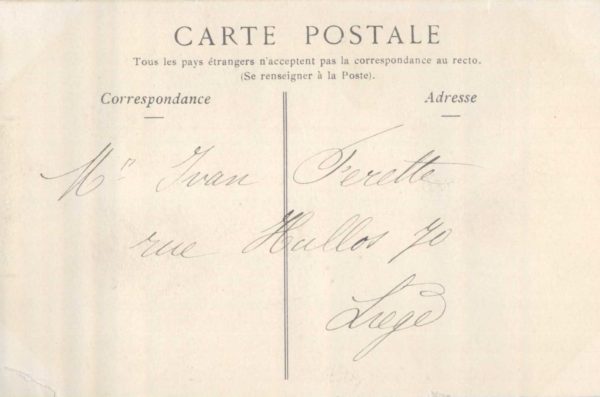 CARTE POSTALE
Tous les pays étrangers n'acceptent pas la correspondance au recto.
(Se renseigner à la Poste).
Correspondance
Adresse
Mr Ivan Ferette
rue Hullos 70
Liège